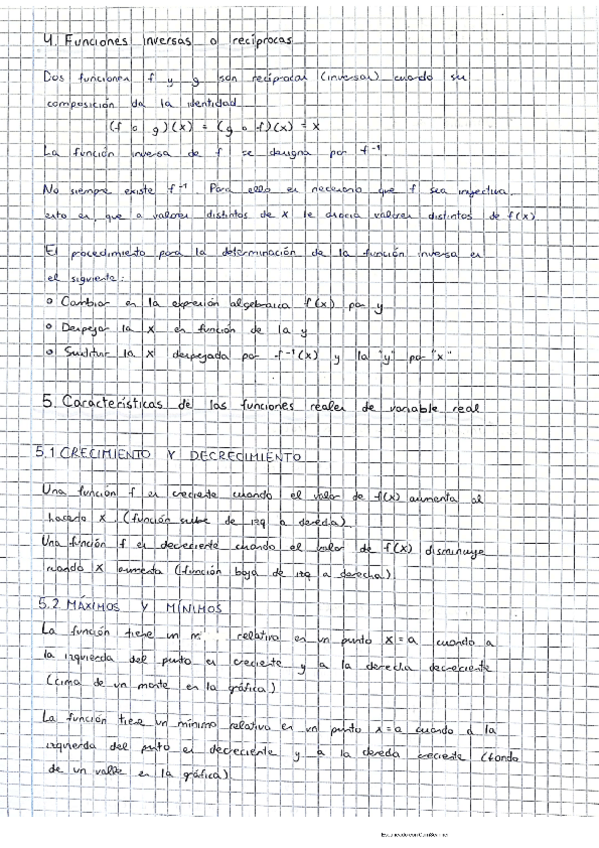 4. Funciones inversas o recíprocas
Dos funciones f y g son recíprocas (inversas) cuando su
composición da la identidad
(f o g)(x) = (g o f)(x) = x
La función inversa de f se designa por f⁻¹.
No siempre existe f⁻¹. Para ello es necesario que f sea inyectiva,
esto es, que a valores distintos de x le asocia valores distintos de f(x)
El procedimiento para la determinación de la función inversa es
el siguiente:
o Cambiar en la expresión algebraica f(x) por y
o Despejar la x en función de la y
o Sustituir la x despejada por f⁻¹(x) y la "y" por "x"
5. Características de las funciones reales de variable real
5.1 CRECIMIENTO Y DECRECIMIENTO
Una función f es creciente cuando el valor de f(x) aumenta al
hacerlo x (función sube de izq a derecha).
Una función f es decreciente cuando el valor de f(x) disminuye
cuando x aumenta (función baja de izq a derecha)
5.2 MÁXIMOS Y MÍNIMOS
La función tiene un relativo en un punto x=a cuando a
la izquierda del punto es creciente y a la derecha decreciente
(cima de un monte en la gráfica)
La función tiene un mínimo relativo en un punto x=a cuando a la
izquierda del punto es decreciente y a la derecha creciente (fondo
de un valle en la gráfica)
Escaneado con CamScanner